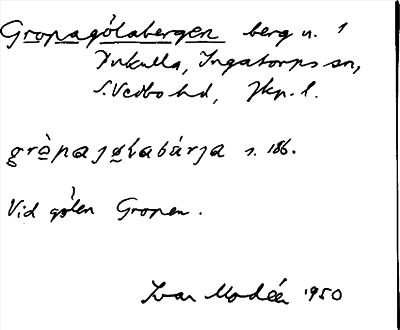 Gropagölabergen berg u. 1
Fukulla, Ingatorps sn,
S. Vedbo hd, Jkp. l.
gròpajølabárja s. 186.
Vid gölen Gropen.
Ivar Modéer 1950